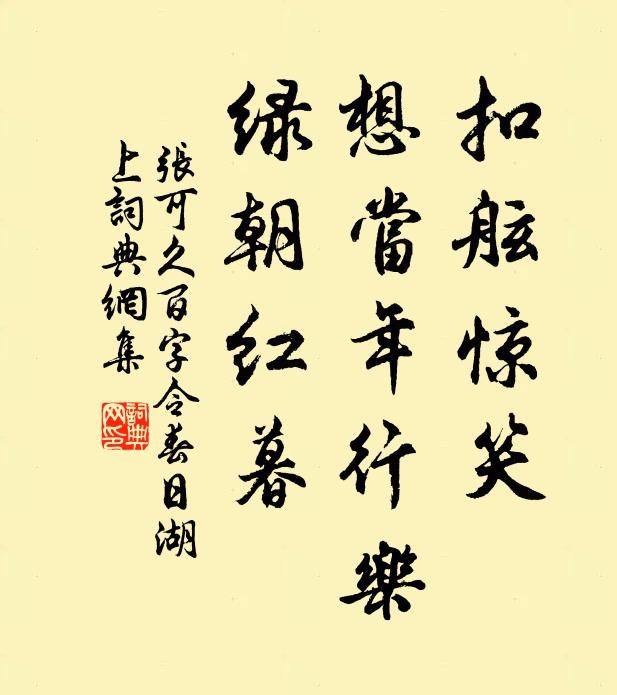 扣舷惊笑
想當年行樂
绿朝红暮
張可久百字令春日湖
上詞典網集
詞典
网印